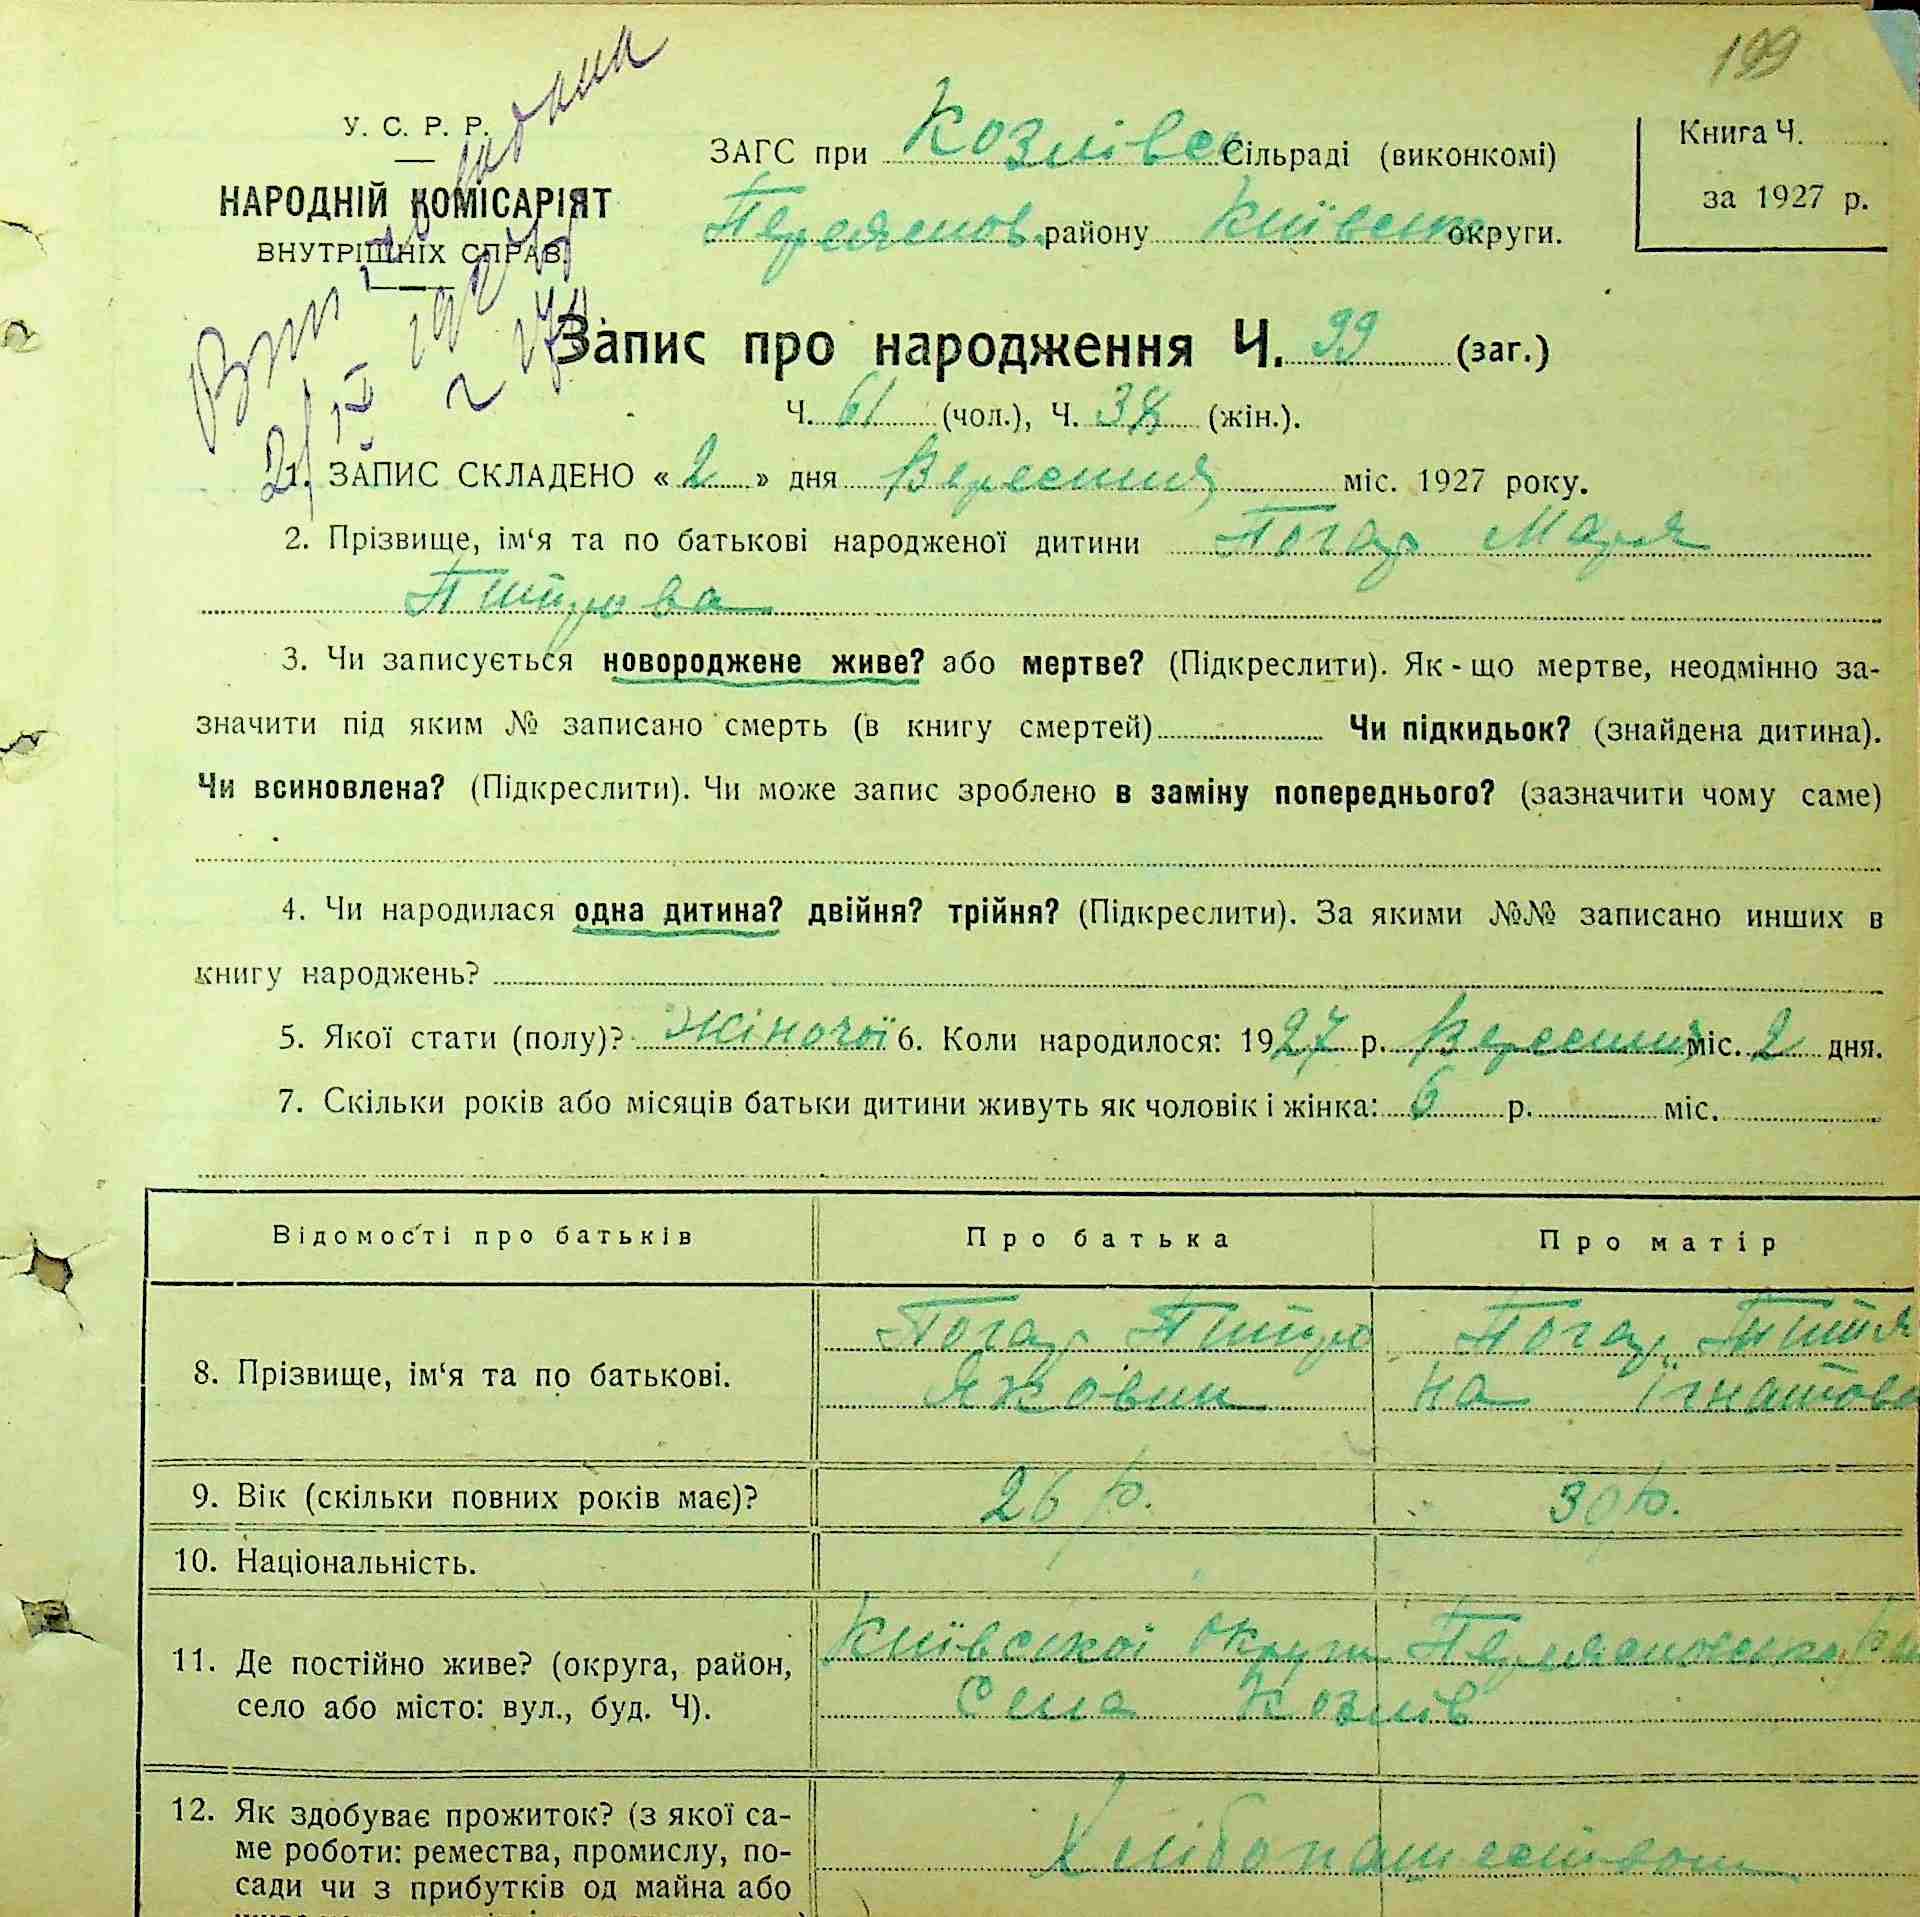 199
У. С. Р. Р.
НАРОДНІЙ КОМІСАРІЯТ
ВНУТРІШНІХ СПРАВ.
ЗАГС при Козлівс Сільраді (виконкомі)
Переяслов. району Київсько округи.
Книга Ч.
за 1927 р.
Запис про народження Ч. 99 (заг.)
Ч. 61 (чол.), Ч. 38 (жін.).
1. ЗАПИС СКЛАДЕНО « 2 » дня Вересння міс. 1927 року.
2. Прізвище, ім‘я та по батькові народженої дитини Погар Марія
Питрова
3. Чи записується новороджене живе? або мертве? (Підкреслити). Як-що мертве, неодмінно за-
значити під яким № записано смерть (в книгу смертей) Чи підкидьок? (знайдена дитина).
Чи всиновлена? (Підкреслити). Чи може запис зроблено в заміну попереднього? (зазначити чому саме)
4. Чи народилася одна дитина? двійня? трійня? (Підкреслити). За якими №№ записано инших в
книгу народжень?
5. Якої стати (полу)? Жіночої 6. Коли народилося: 1927 р. Вересння міс. 2 дня.
7. Скільки років або місяців батьки дитини живуть як чоловік і жінка: 6 р. міс.
Відомості про батьків Про батька Про матір
Погар Питро Погар
8. Прізвище, ім‘я та по батькові. Якович на Ігнатова
9. Вік (скільки повних років має)? 26 р. 30 р.
10. Національність.
Київської округи Переясловсько
11. Де постійно живе? (округа, район,
село або місто: вул., буд. Ч). Села Козлів
12. Як здобуває прожиток? (з якої са-
ме роботи: ремества, промислу, по- Хлібопашеством
сади чи з прибутків од майна або